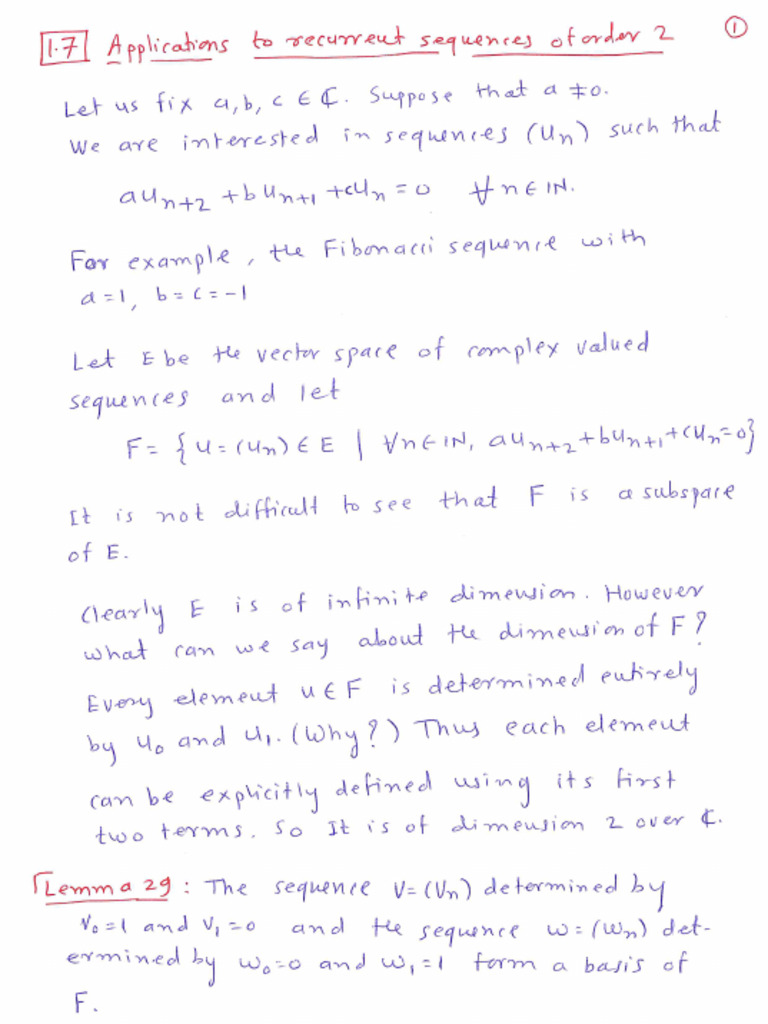 1.7 Applications to recurrent sequences of order 2 ①
Let us fix a, b, c ∈ ℂ. Suppose that a ≠ 0.
We are interested in sequences (Un) such that
aUn+2 + bUn+1 + cUn = 0 ∀ n ∈ IN.
For example, the Fibonacci sequence with
a = 1, b = c = -1
Let E be the vector space of complex valued
sequences and let
F = { u = (un) ∈ E | ∀n ∈ IN, aun+2 + bun+1 + cun = 0}
It is not difficult to see that F is a subspace
of E.
Clearly E is of infinite dimension. However
what can we say about the dimension of F?
Every element u ∈ F is determined entirely
by u0 and u1. (Why?) Thus each element
can be explicitly defined using its first
two terms. So It is of dimension 2 over ℂ.
Lemma 29 : The sequence V = (Vn) determined by
V0 = 1 and V1 = 0 and the sequence w = (wn) det-
ermined by w0 = 0 and w1 = 1 form a basis of
F.